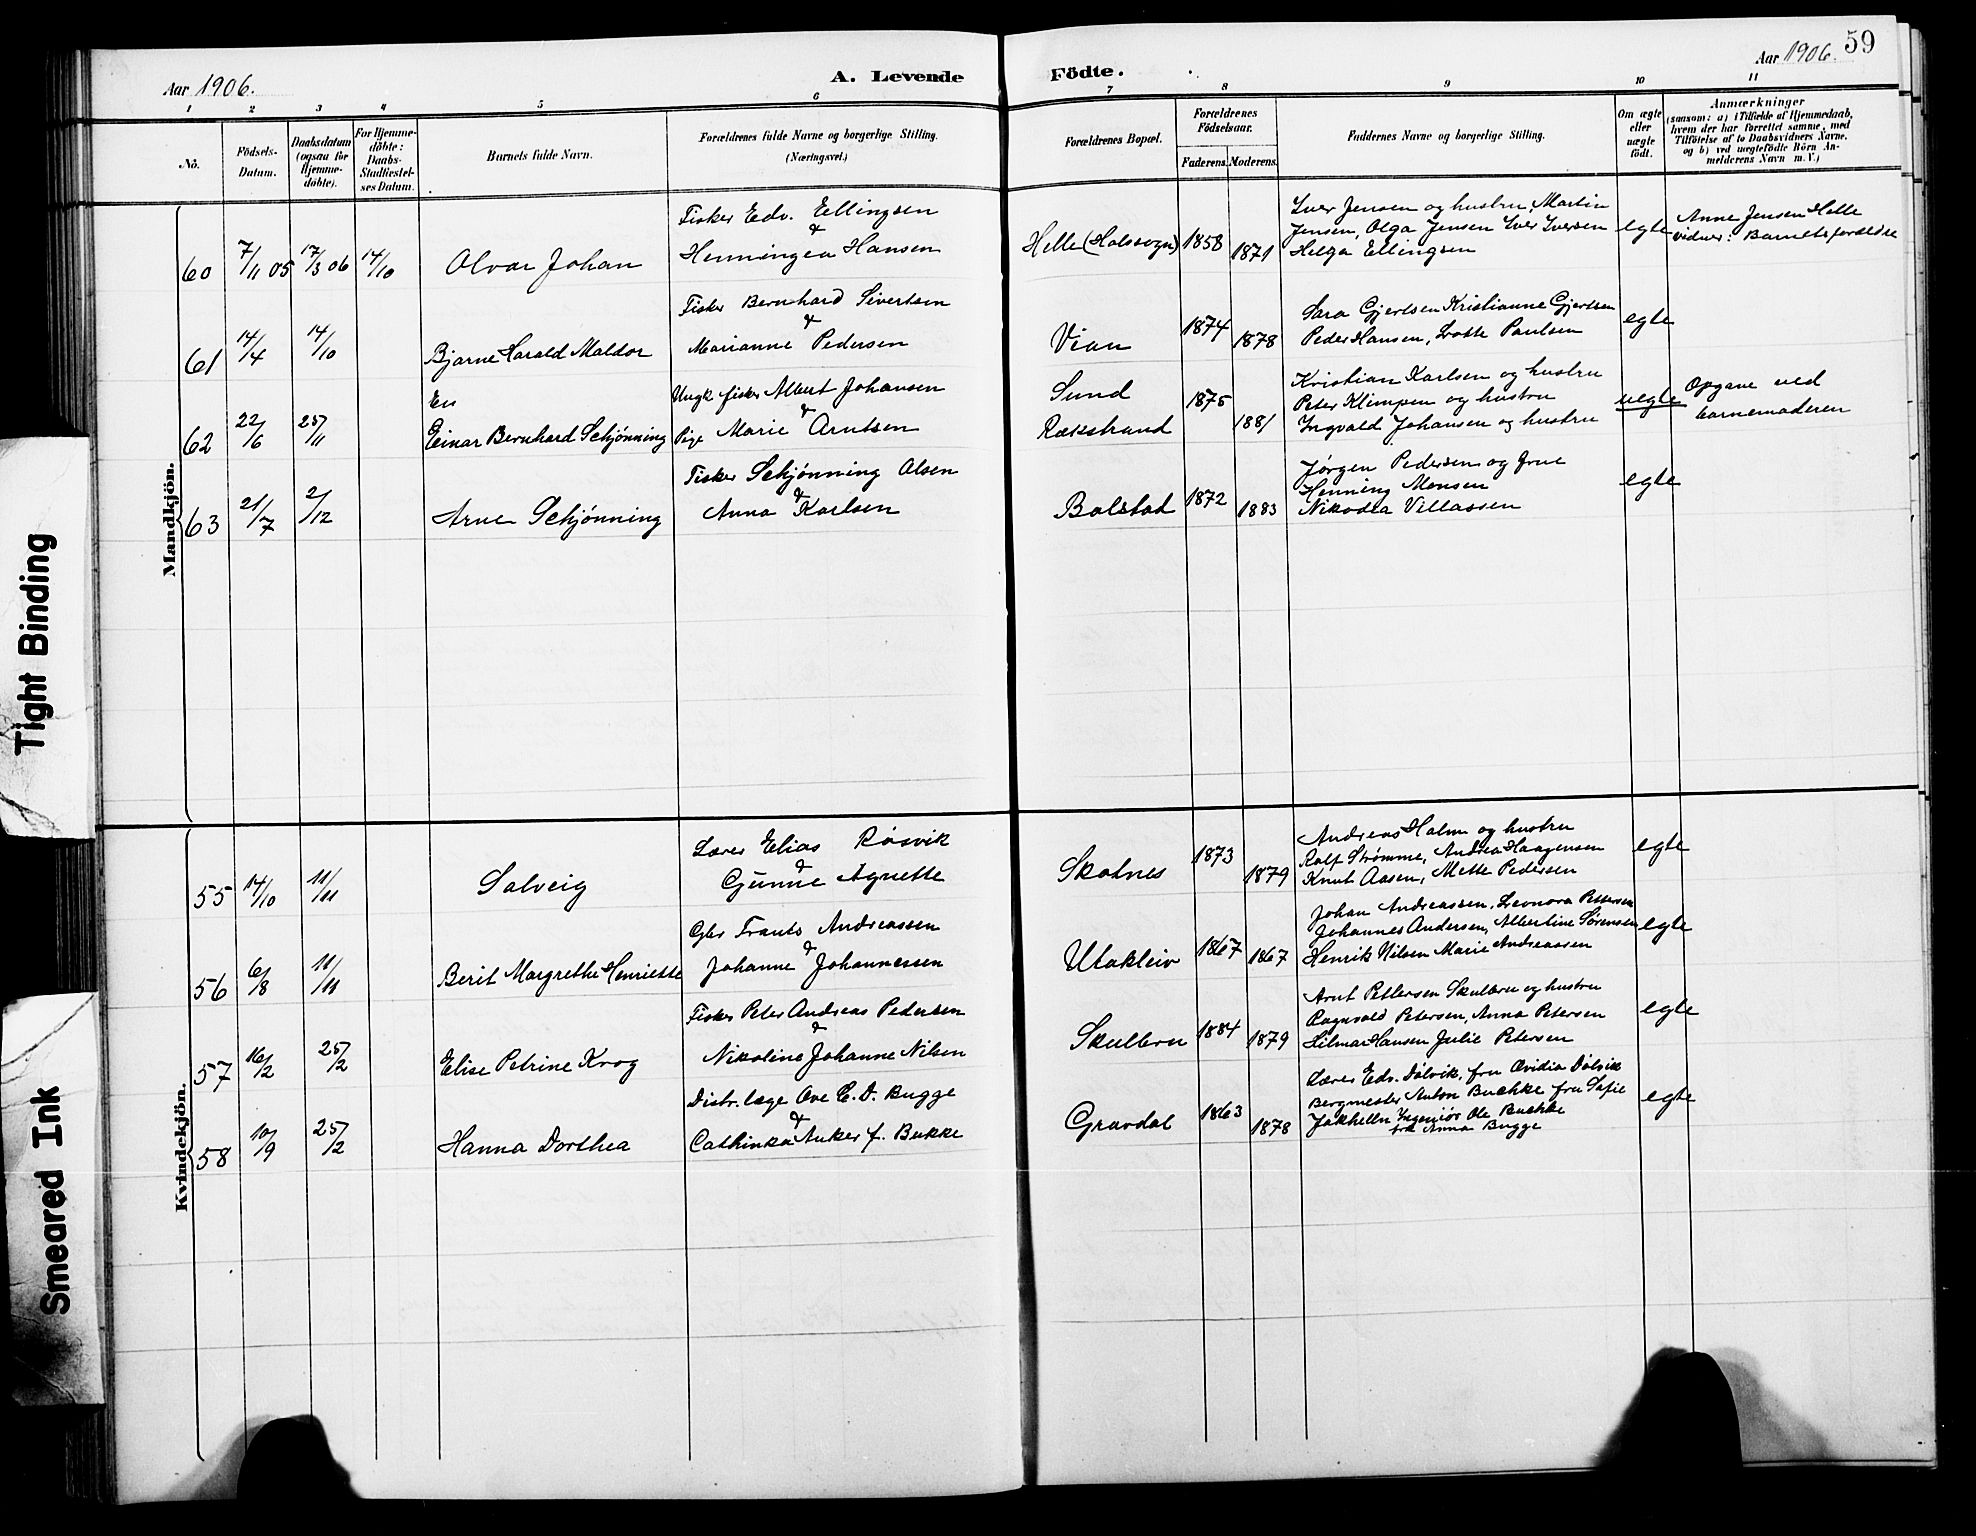 Aar 1906.
A. Levende Födte.
Aar 1906.
59
1 2 3 4 5 6 7 8 9 10 11
No.
Födsels-Datum.
Daabsdatum (ogsaa for Hjemme-døbte).
For Hjemme-døbte: Daabs-Stadfæstel-ses Datum.
Barnets fulde Navn.
Forældrenes fulde Navne og borgerlige Stilling.
(Næringsvei.)
Forældrenes Bopæl.
Forældrenes Födselsaar.
Faderens. Moderens.
Faddernes Navne og borgerlige Stilling.
Om ægte eller uægte födt.
Anmærkninger
(saasom: a) i Tilfælde af Hjemmedaab,
hvem der har forrettet samme, med
Tilföielse af to Daabsvidners Navne.
og b) ved uægtefödte Börn An-
melderens Navn m. V.)
Mandkjön.
60 7/11 05 17/3 06 14/10 Alvar Johan
Fisker Edv. Ellingsen
&
Henningea Hansen
Helle (Holssogn) 1858 1871
Iver Jensen og hustru, Martin
Jensen, Olga Jensen Iver Iversen
Helga Ellingsen
egte
Anne Jensen Helle
vidner: Barnets forældre
61 14/4 14/10 Bjarne Harald Maldor
Fisker Bernhard Sivertsen
&
Marianne Pedersen
Vian 1874 1878
Sara Gjertsen Kristianne Gjertsen
Peder Hansen, Lotte Paulsen
egte
62 22/6 25/11 En
Einar Bernhard Schjønning
Ungk fisker Albert Johansen
&
Pige Marie Arntsen
Sund
Rækstrand
1875 1881
Kristian Karlsen og hustru
Peter Klimpen og hustru
Ingvald Johansen og hustru
uegte
Opgave ved
barnemoderen
63 21/7 2/12 Arne Schjønning
Fisker Schjønning Olsen
&
Anna Karlsen
Bolstad 1872 1883
Jørgen Pedersen og frue
Henning Monsen
Nikodea Villassen
egte
Kvindekjön.
55 14/10 11/11 Solveig
Lærer Elias Røsvik
&
Gunne Agnette
Skotnes 1873 1879
Andreas Holm og hustru
Rolf Strømme, Andrea Haagensen
Knut Aasen, Mette Pedersen
egte
56 6/8 11/11 Berit Margrethe Henriette
Gbr Frants Andreassen
&
Johanne Johannessen
Utakleiv 1867 1867
Johan Andreassen, Leonora Pettersen
Johannes Andersen, Albertine Sørensen
Henrik Nilsen Marie Andreassen
egte
57 16/2 25/2 Elise Petrine Krog
Fisker Peter Andreas Pedersen
&
Nikoline Johanne Nilsen
Skulbru 1884 1879
Arnt Pettersen Skulbru og hustru
Ragnvald Petersen, Anna Petersen
Hilmar Hansen Julie Petersen
egte
58 10/9 25/2 Hanna Dorthea
Distr. læge Ove C. D. Bugge
&
Cathinka Anker f. Bukke
Gravdal 1863 1878
Lærer Edv. Dølvik, fru Ovidia Dølvik
Bergmester Anton Buchke fru Sofie
Jakhelln Ingeniør Ole Buchke
frk Anna Bugge
egte
Tight Binding
Smeared Ink